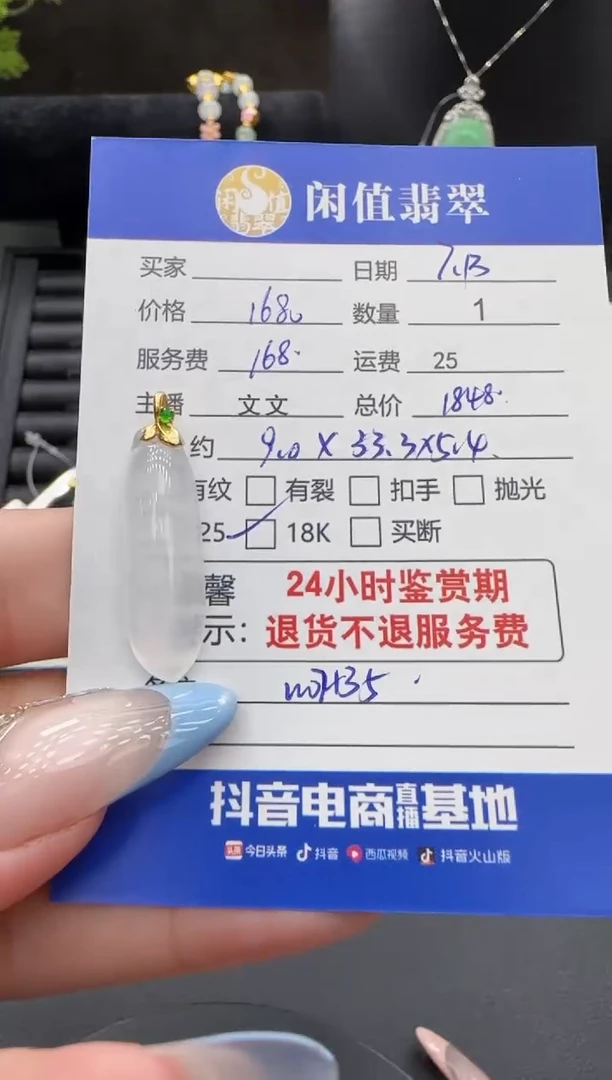 闲值翡翠
闲值翡翠
买家 日期 7.13
价格 1680 数量 1
服务费 168. 运费 25
主播 文文 总价 1848.
约 9.0 X 33.3X5.4
有纹 有裂 扣手 抛光
25 18K 买断
馨 24小时鉴赏期
示: 退货不退服务费
抖音电商直播基地
头条 今日头条 抖音 西瓜视频 抖音火山版